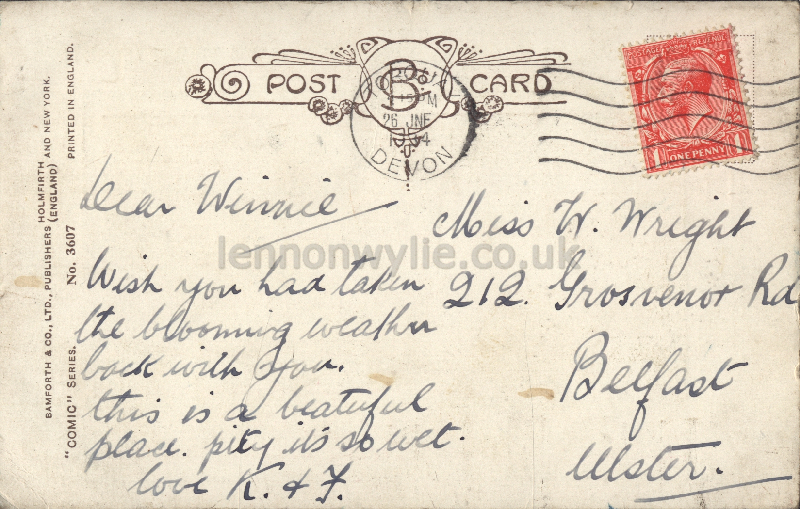 POST CARD
B
PM
26 JNE
DEVON
POSTAGE REVENUE
ONE PENNY
BAMFORTH & CO., LTD., PUBLISHERS HOLMFIRTH (ENGLAND) AND NEW YORK.
"COMIC" SERIES. No. 3607 PRINTED IN ENGLAND.
Dear Winnie
Wish you had taken
the blooming weather
back with you.
this is a beatuful
place. pity it's so wet.
love K. & F.
Miss W. Wright
212. Grosvenor Rd
Belfast
Ulster.
lennonwylie.co.uk